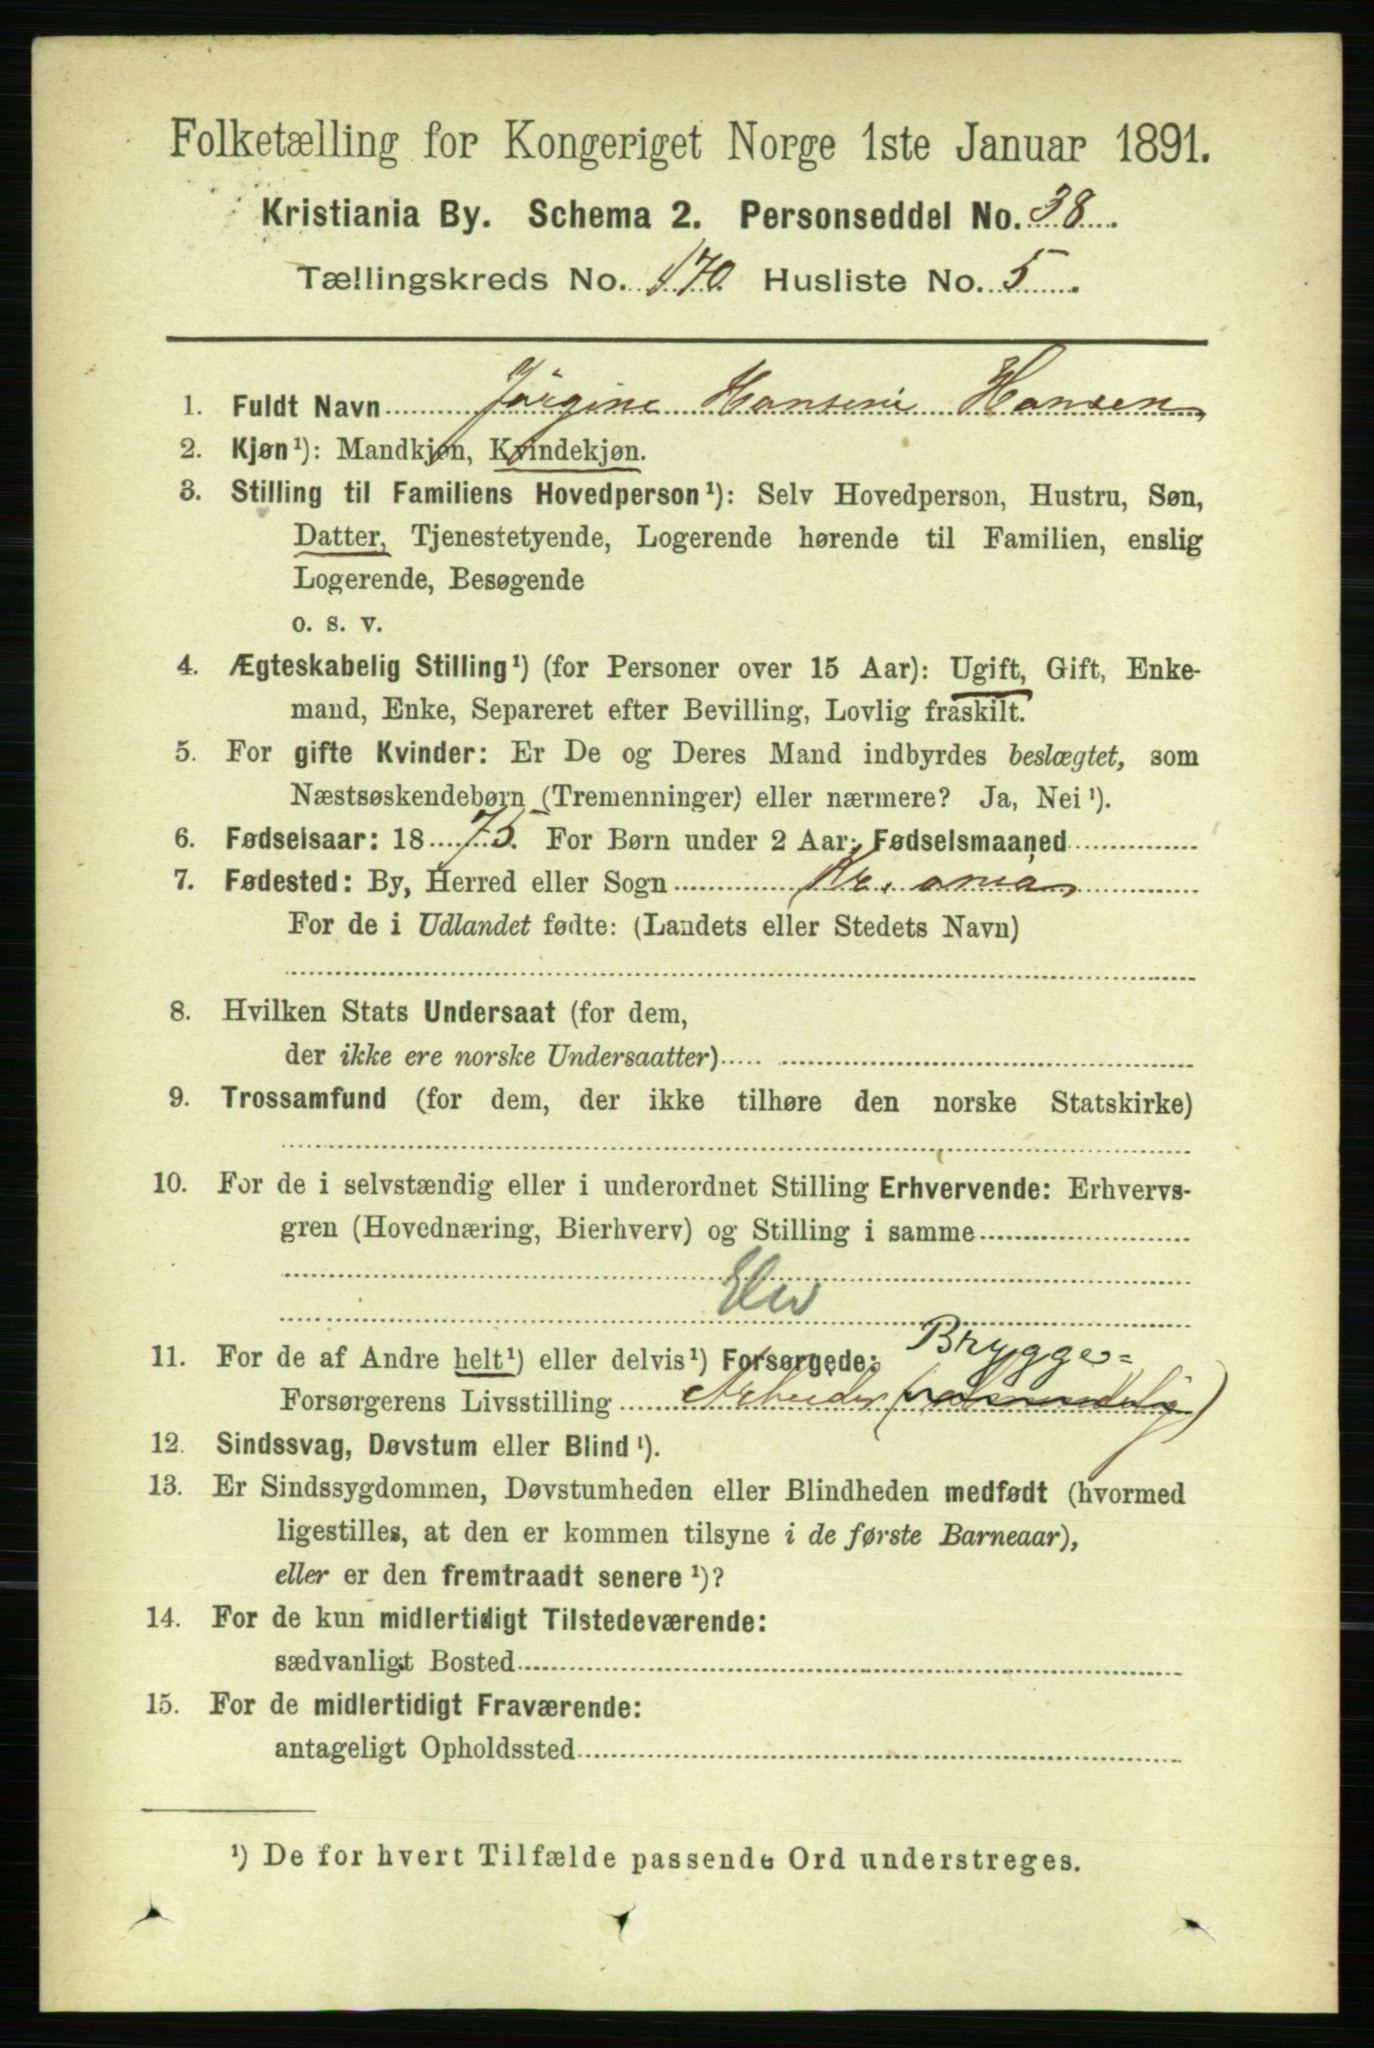 Folketælling for Kongeriget Norge 1ste Januar 1891.
Kristiania By. Schema 2. Personseddel No. 38.
Tællingskreds No. 170 Husliste No. 5.
1. Fuldt Navn Jørgine Hansine Hansen
2. Kjøn¹): Mandkjøn, Kvindekjøn.
3. Stilling til Familiens Hovedperson¹): Selv Hovedperson, Hustru, Søn,
Datter, Tjenestetyende, Logerende hørende til Familien, enslig
Logerende, Besøgende
o. s. v.
4. Ægteskabelig Stilling¹) (for Personer over 15 Aar): Ugift, Gift, Enke-
mand, Enke, Separeret efter Bevilling, Lovlig fraskilt.
5. For gifte Kvinder: Er De og Deres Mand indbyrdes beslægtet, som
Næstsøskendebørn (Tremenninger) eller nærmere? Ja, Nei¹).
6. Fødselsaar: 1875. For Børn under 2 Aar: Fødselsmaaned
7. Fødested: By, Herred eller Sogn Kr.ania
For de i Udlandet fødte: (Landets eller Stedets Navn)
8. Hvilken Stats Undersaat (for dem,
der ikke ere norske Undersaatter)
9. Trossamfund (for dem, der ikke tilhøre den norske Statskirke)
10. For de i selvstændig eller i underordnet Stilling Erhvervende: Erhvervs-
gren (Hovednæring, Bierhverv) og Stilling i samme
Elev
11. For de af Andre helt¹) eller delvis¹) Forsørgede: Brygge-
Forsørgerens Livsstilling Arbeider
12. Sindssvag, Døvstum eller Blind¹).
13. Er Sindssygdommen, Døvstumheden eller Blindheden medfødt (hvormed
ligestilles, at den er kommen tilsyne i de første Barneaar),
eller er den fremtraadt senere¹)?
14. For de kun midlertidigt Tilstedeværende:
sædvanligt Bosted
15. For de midlertidigt Fraværende:
antageligt Opholdssted
¹) De for hvert Tilfælde passende Ord understreges.